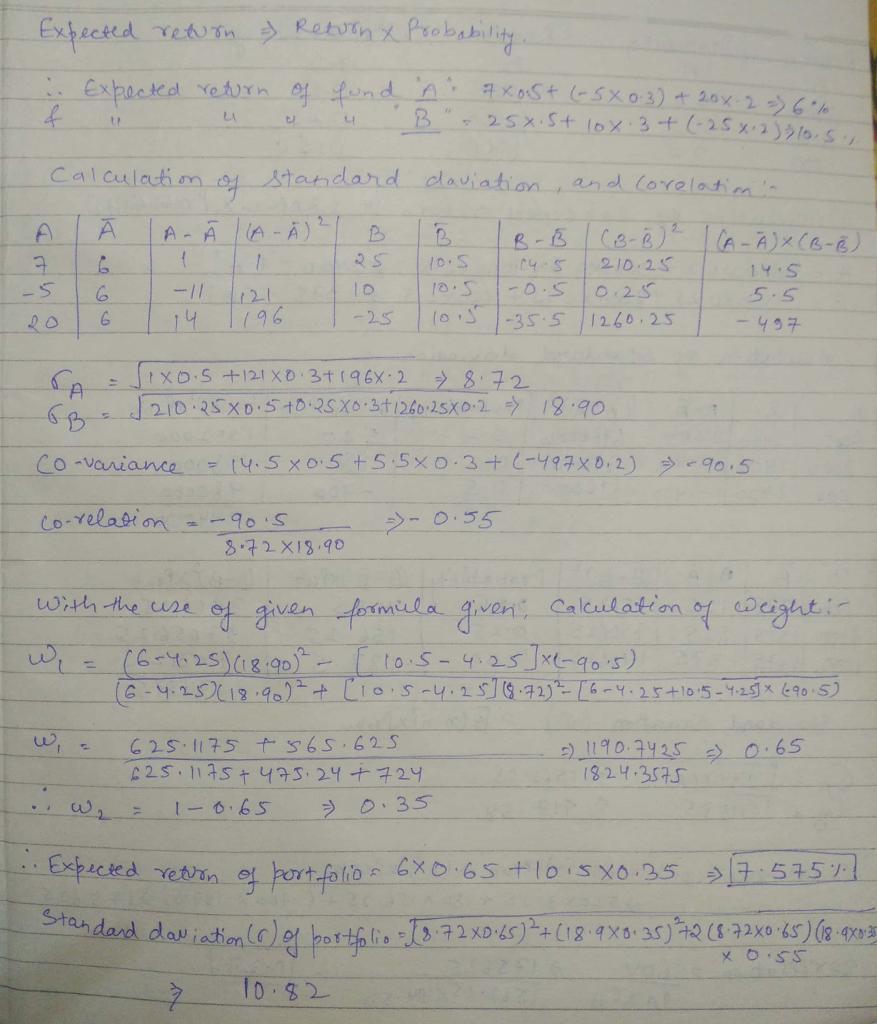 Expected return ⇒ Return x Probability.
∴ Expected return of fund "A": 7x0.5+ (-5x0.3) + 20x.2 ⇒ 6%
& " " " " "B" = 25x.5+ 10x.3 + (-25x.2) ⇒ 10.5%
Calculation of standard daviation, and Corelation :-
A | Ā | A-Ā | (A-Ā)² | B | B̄ | B-B̄ | (B-B̄)² | (A-Ā)x(B-B̄)
7 | 6 | 1 | 1 | 25 | 10.5 | 14.5 | 210.25 | 14.5
-5 | 6 | -11 | 121 | 10 | 10.5 | -0.5 | 0.25 | 5.5
20 | 6 | 14 | 196 | -25 | 10.5 | -35.5 | 1260.25 | -497
σA = √1x0.5 +121x0.3+196x.2 ⇒ 8.72
σB = √210.25x0.5+0.25x0.3+1260.25x0.2 ⇒ 18.90
Co-variance = 14.5x0.5+5.5x0.3+(-497x0.2) ⇒ -90.5
Co-relation = -90.5 ⇒ -0.55
8.72x18.90
With the use of given formula given, Calculation of weight :-
W₁ = (6-4.25)(18.90)² - [10.5-4.25]x(-90.5)
(6-4.25)(18.90)² + [10.5-4.25](8.72)² - [6-4.25+10.5-4.25]x(-90.5)
W₁ = 625.1175 + 565.625 ⇒ 1190.7425 ⇒ 0.65
625.1175 + 475.24 + 724 1824.3575
∴ W₂ = 1-0.65 ⇒ 0.35
∴ Expected return of portfolio = 6x0.65 +10.5x0.35 ⇒ 7.575%
Standard daviation(σ) of portfolio = √(8.72x0.65)²+(18.9x0.35)²+2(8.72x0.65)(18.9x0.35
x 0.55
⇒ 10.82